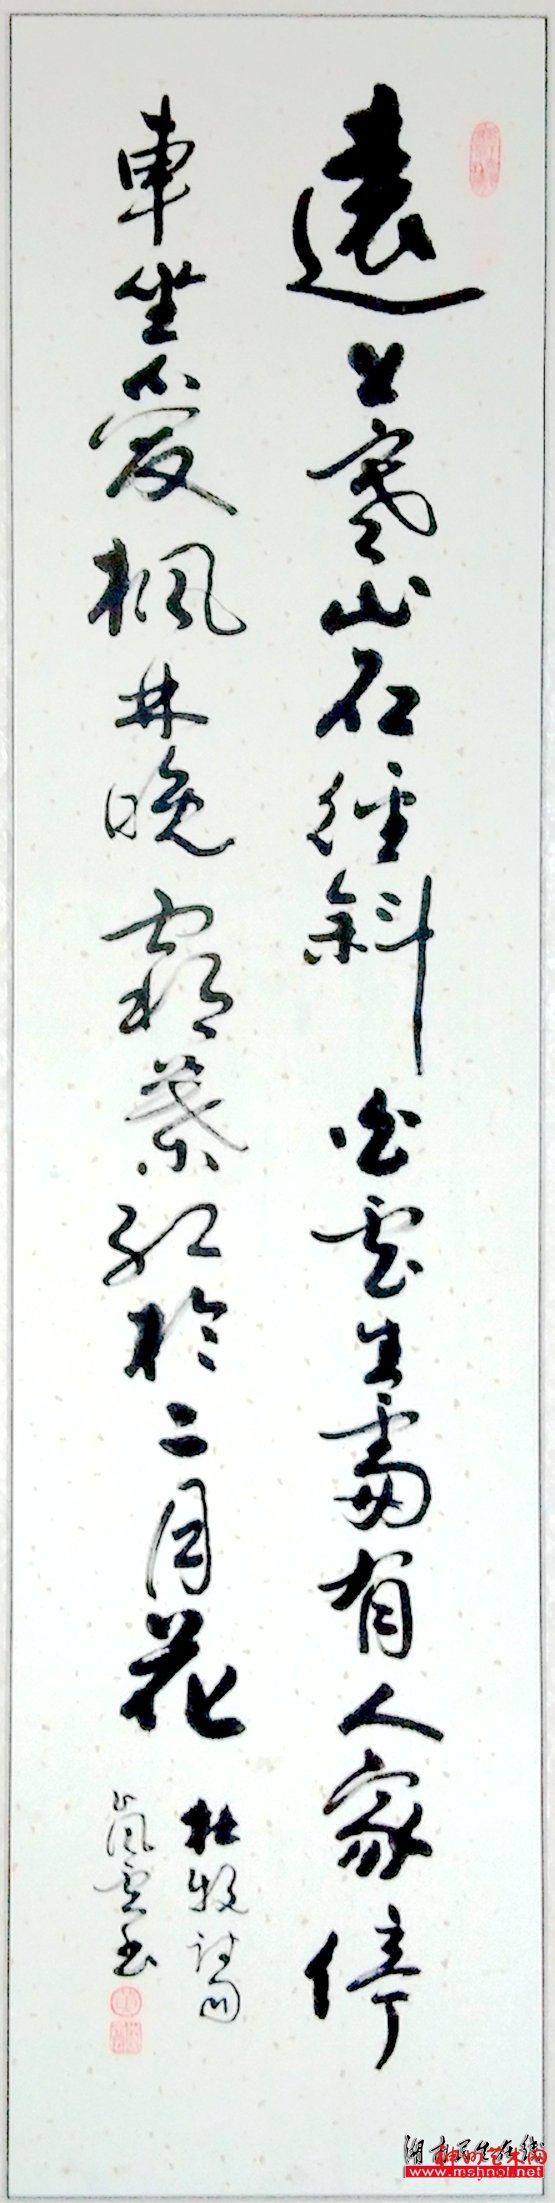 遠上寒山石徑斜白雲生處有人家停
車坐愛楓林晚霜葉紅於二月花
杜牧詩
嵐雲書
www.mshnol.net